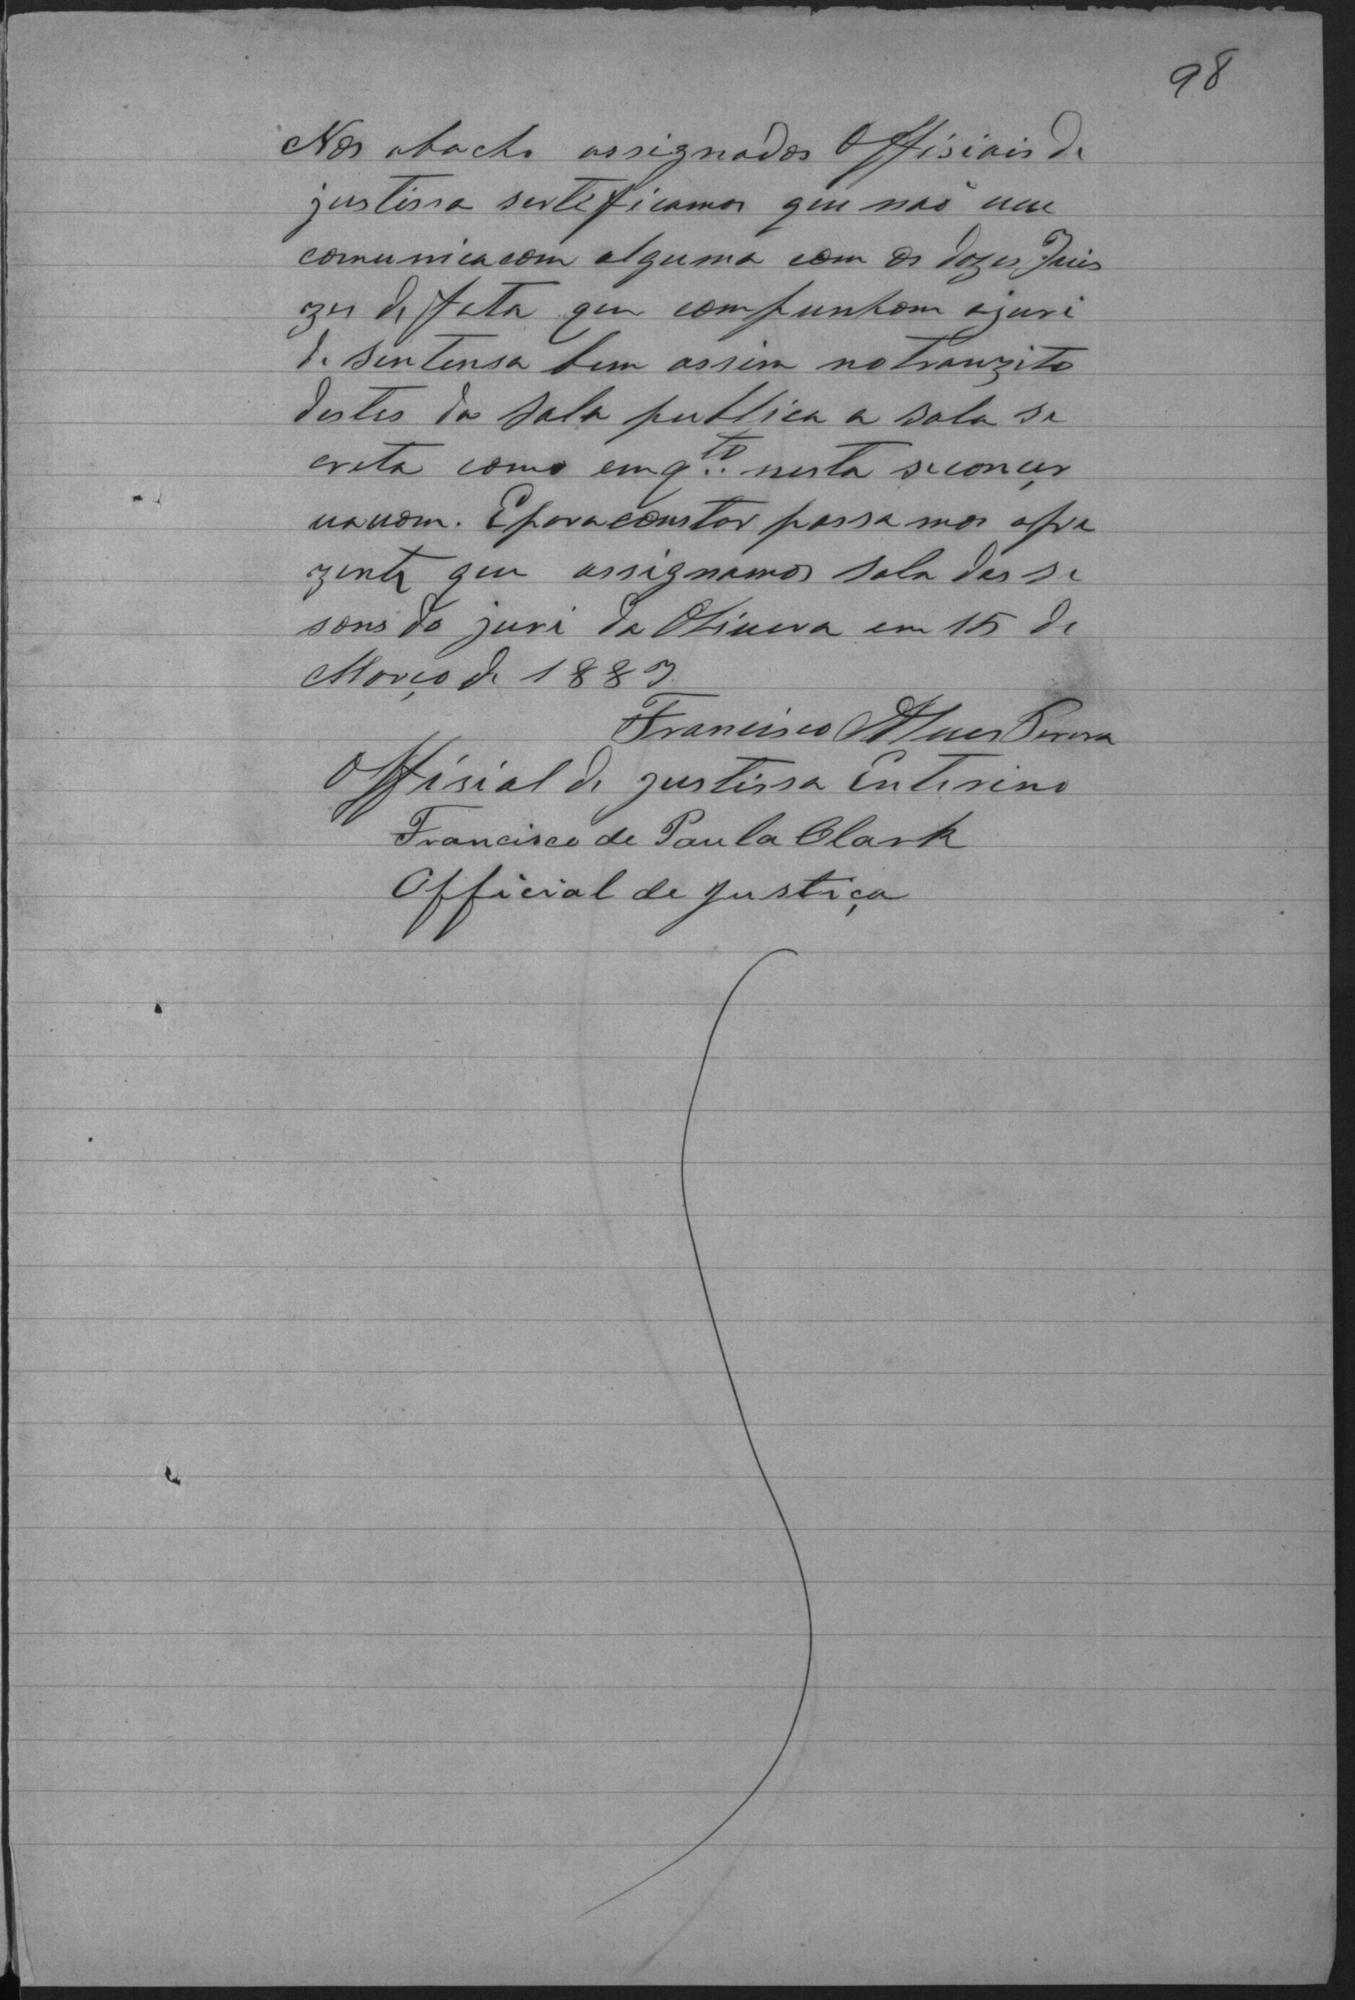 98
Nos abacho assignados Offisiais de
justissa serteficamos que naõ uve
comunicacom alguma com os dozes Juis
zes de fata que compunhom ajuri
de sentensa bem assim notranzito
destes da sala publica a sala se
creta como emq.to nesta seconcer
uauom. Eparaconstar passamos apre
zente que assignamos sala das se
sons do juri da Oliuera em 15 de
Março de 1887
Francisco Alues Perera
Offisial de justissa Enterino
Francisco de Paula Clark
Official de justiça